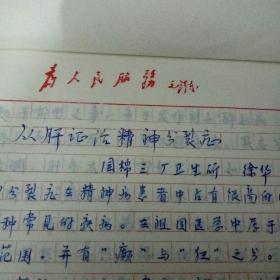 为人民服务 毛泽东
从肝证治精神分裂症
国棉三厂卫生所 徐华
分裂症在精神患者中占有很高的
种常见的疾病。在祖国医学中属于
范围。并有“癫”与“狂”之分。